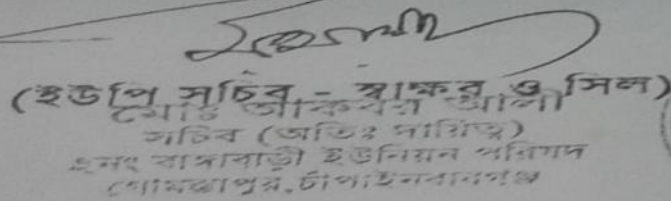 (ইউপি সচিব - স্বাক্ষর ও সিল)
মোঃ আকবর আলী
সচিব (অতিঃ দায়িত্ব)
বাঙ্গাবাড়ী ইউনিয়ন পরিষদ
গোমস্তাপুর, চাঁপাইনবাবগঞ্জ